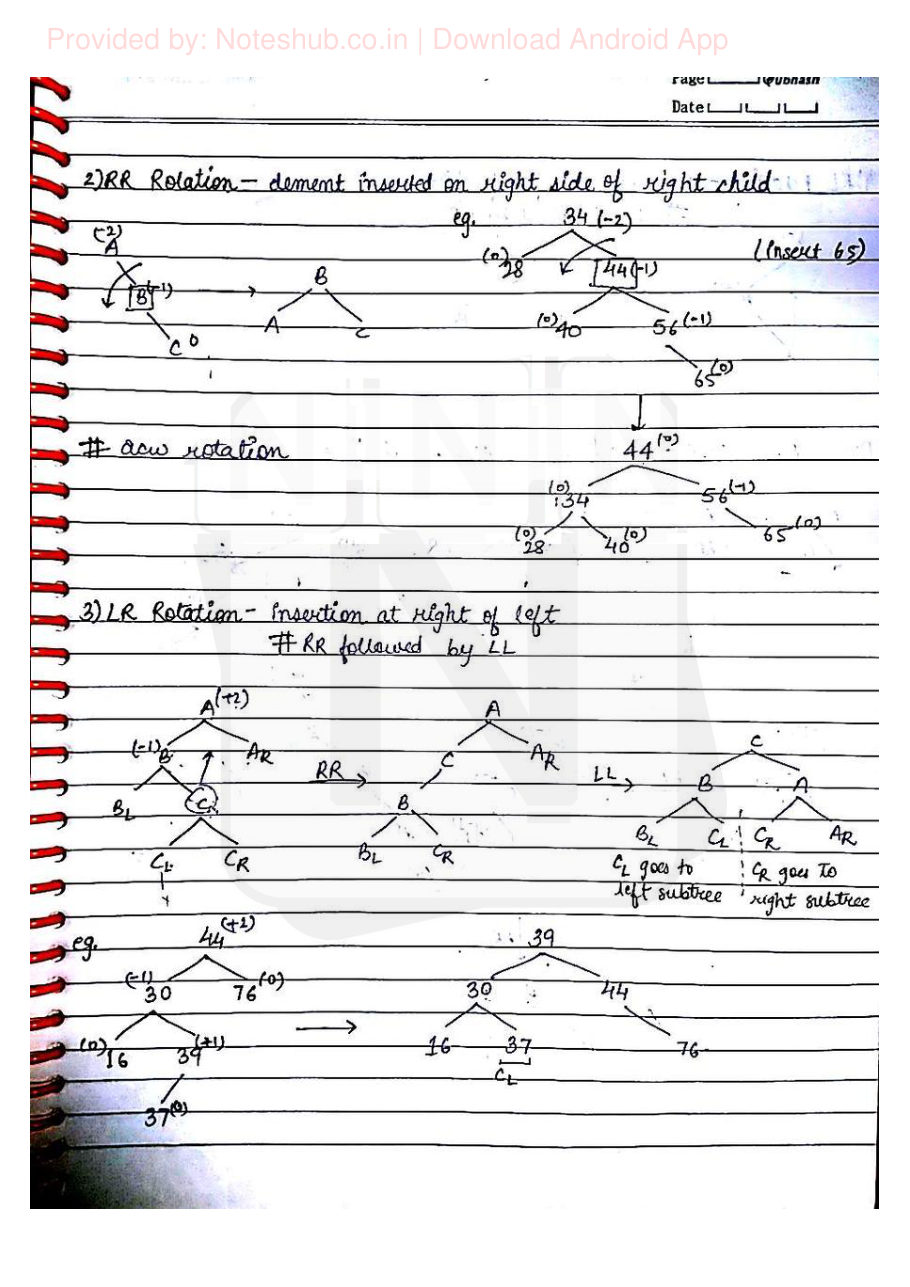 Provided by: Noteshub.co.in | Download Android App
Page
Date
2) RR Rotation - element inserted on right side of right child
eg. 34 (-2)
(-2)
A
(0) 28
44 (-1)
(Insert 65)
B (-1)
B
A
C
(0) 40
56 (-1)
C 0
65 (0)
# acw rotation
44 (0)
(0) 34
56 (-1)
(0) 28
40 (0)
65 (0)
3) LR Rotation - insertion at right of left
# RR followed by LL
A (+2)
A
(-1) B
AR
RR
C
AR
LL
C
BL
C
B
B
A
CL
CR
BL
CR
BL
CL
CR
AR
CL goes to
left subtree
CR goes to
right subtree
eg.
44 (+2)
39
(-1) 30
76 (0)
30
44
(0) 16
39 (+1)
16
37
76
CL
37 (0)